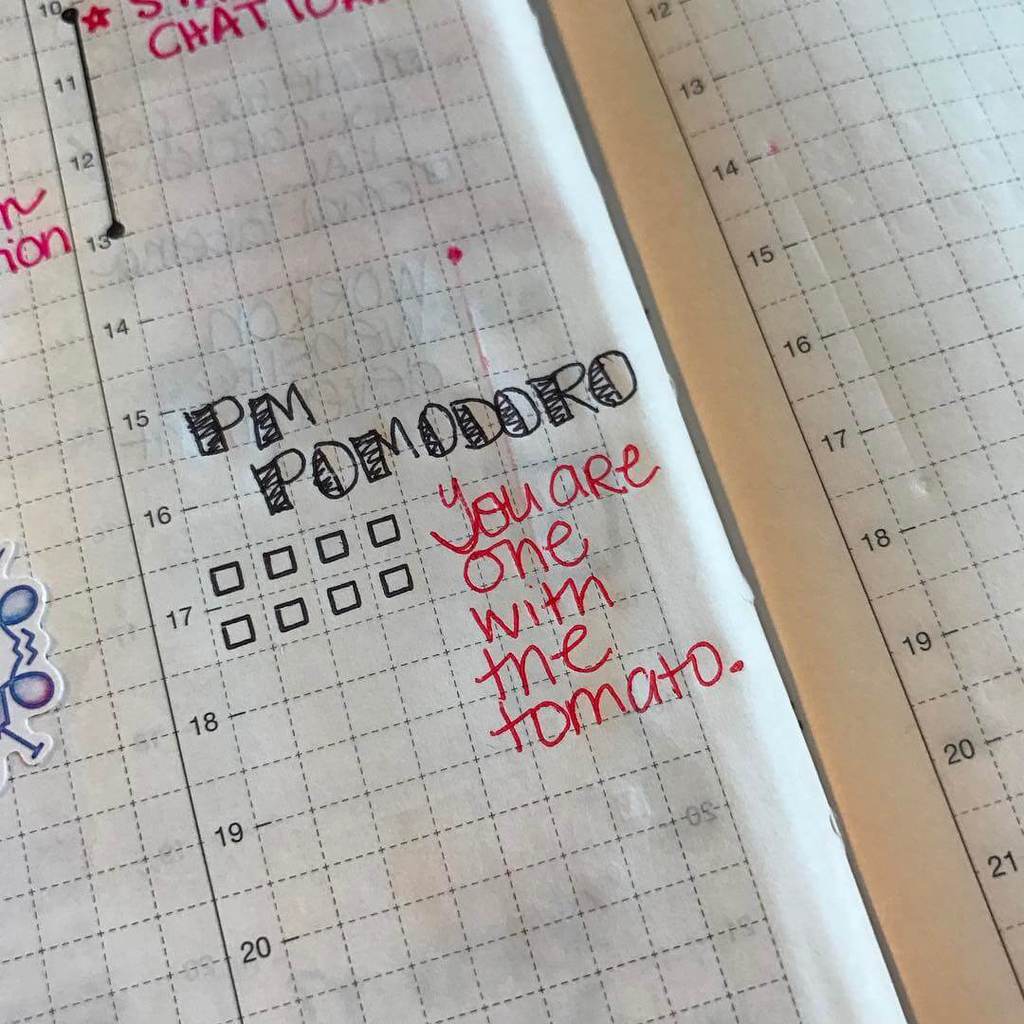 10
CHAT
11
12
n
ion
13
14
15
PM
POMODORO
16
you are
one
with
the
tomato.
17
18
19
20
12
13
14
15
16
17
18
19
20
21